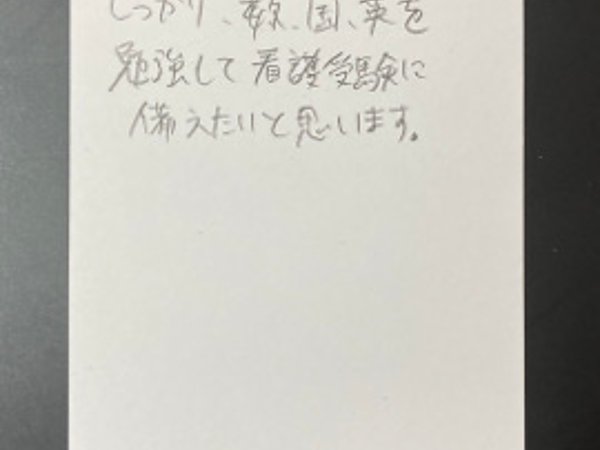 しっかり、数、国、英を
勉強して看護受験に
備えたいと思います。